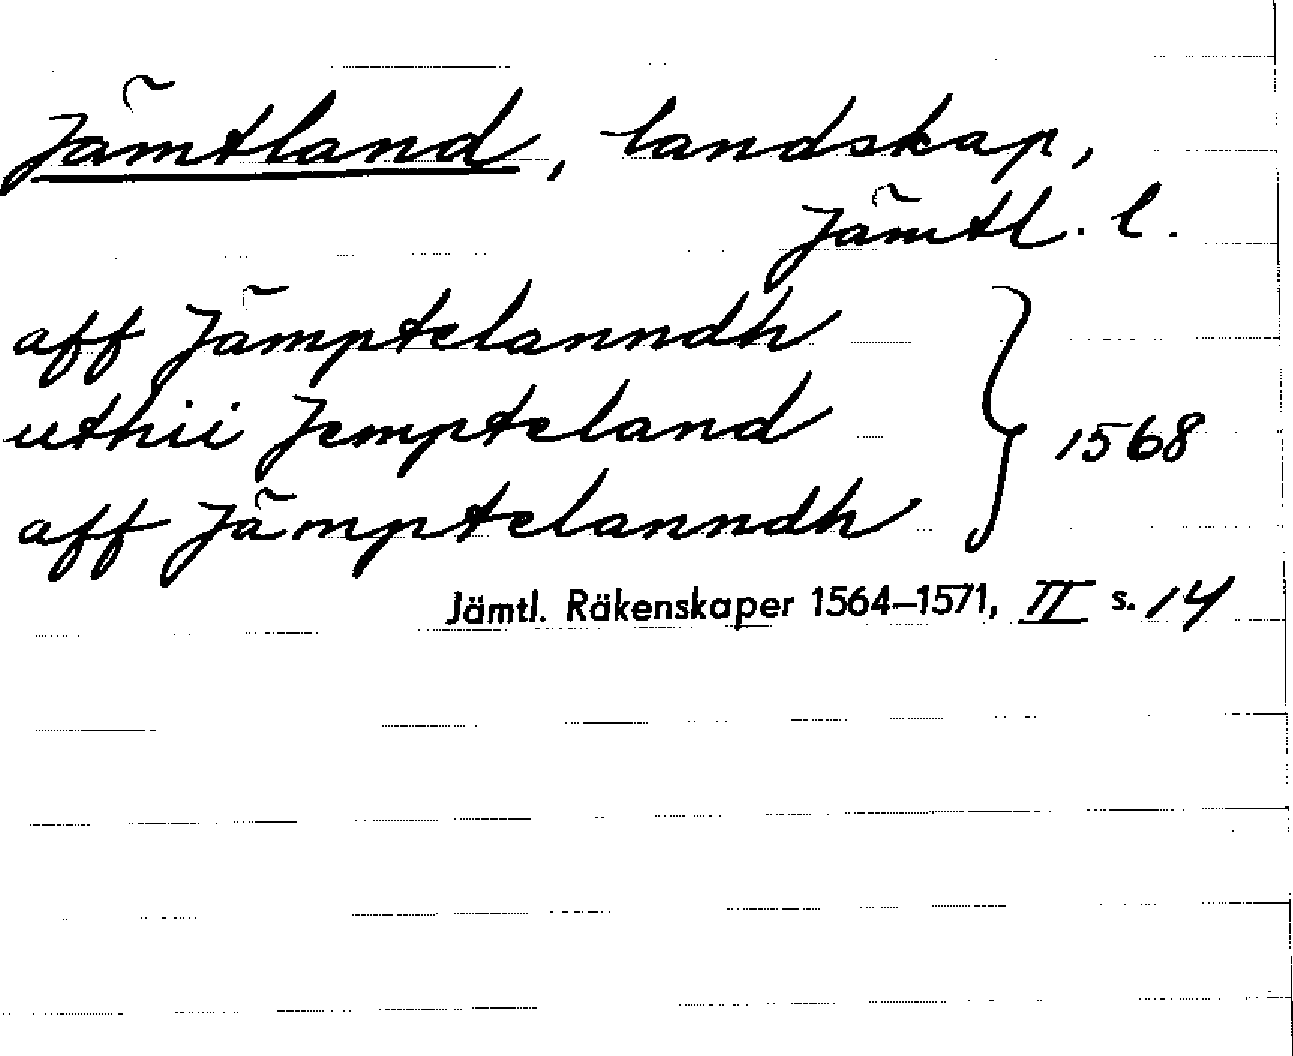 Jämtland, landskap,
Jämtl. l.
aff Jämptelanndh
uthii Jempteland
aff Jämptelanndh
} 1568
Jämtl. Räkenskaper 1564–1571, II s. 14